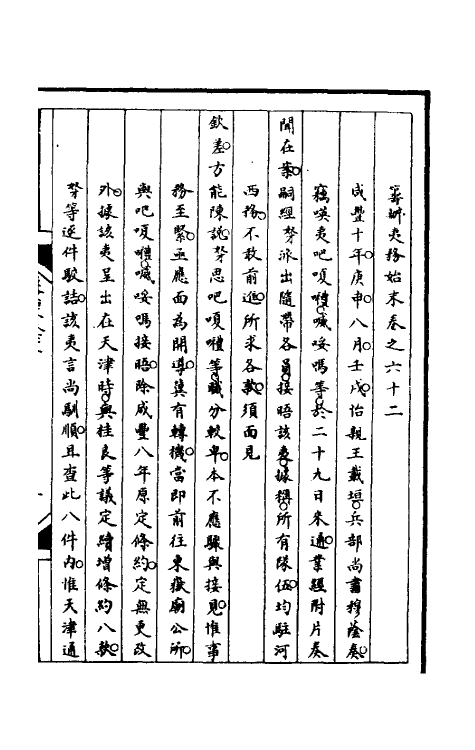 籌辦夷務始末卷之六十二
咸豐十年庚申八月壬戌怡親王載垣兵部尚書穆蔭奏
竊㖸夷吧嗄㘑喊㖠嗎等於二十九日來通業經附片奏
聞在案嗣經拏派出隨帶各員接晤該夷據稱所有隊伍均駐河
西務不敢前進所求各款須面見
欽差方能陳說拏思吧嗄㘑等職分較卑本不應驟與接見惟事
務至緊亟應面為開導冀有轉機當即前往東嶽廟公所
與吧嗄㘑喊㖠嗎接晤除咸豐八年原定條約定無更改
外據該夷呈出在天津時與桂良等議定續增條約八款
拏等逐件駁詰該夷言尚馴順且查此八件內惟天津通